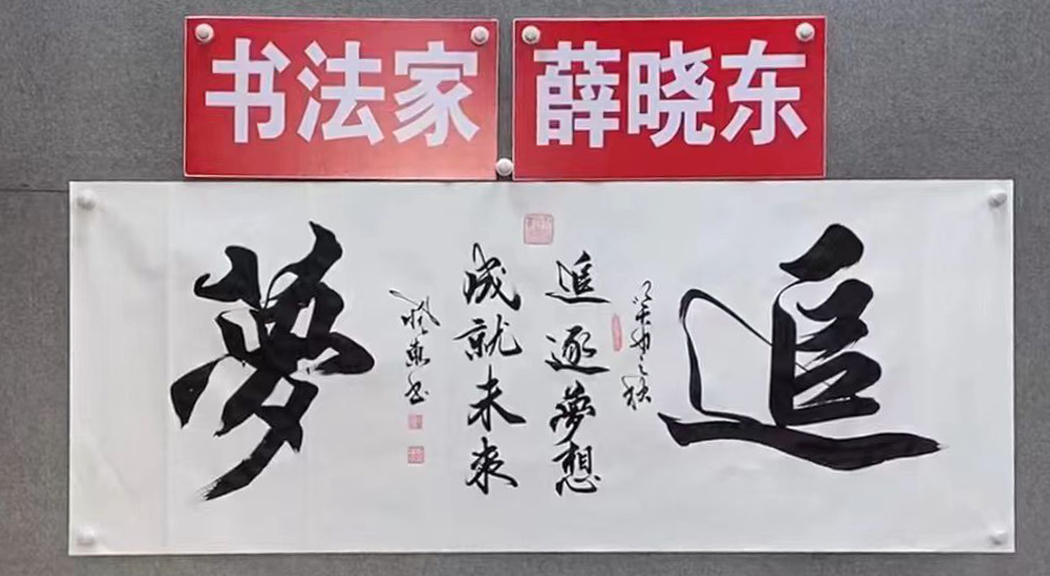 书法家 薛晓东
追
追逐梦想
成就未来
夢